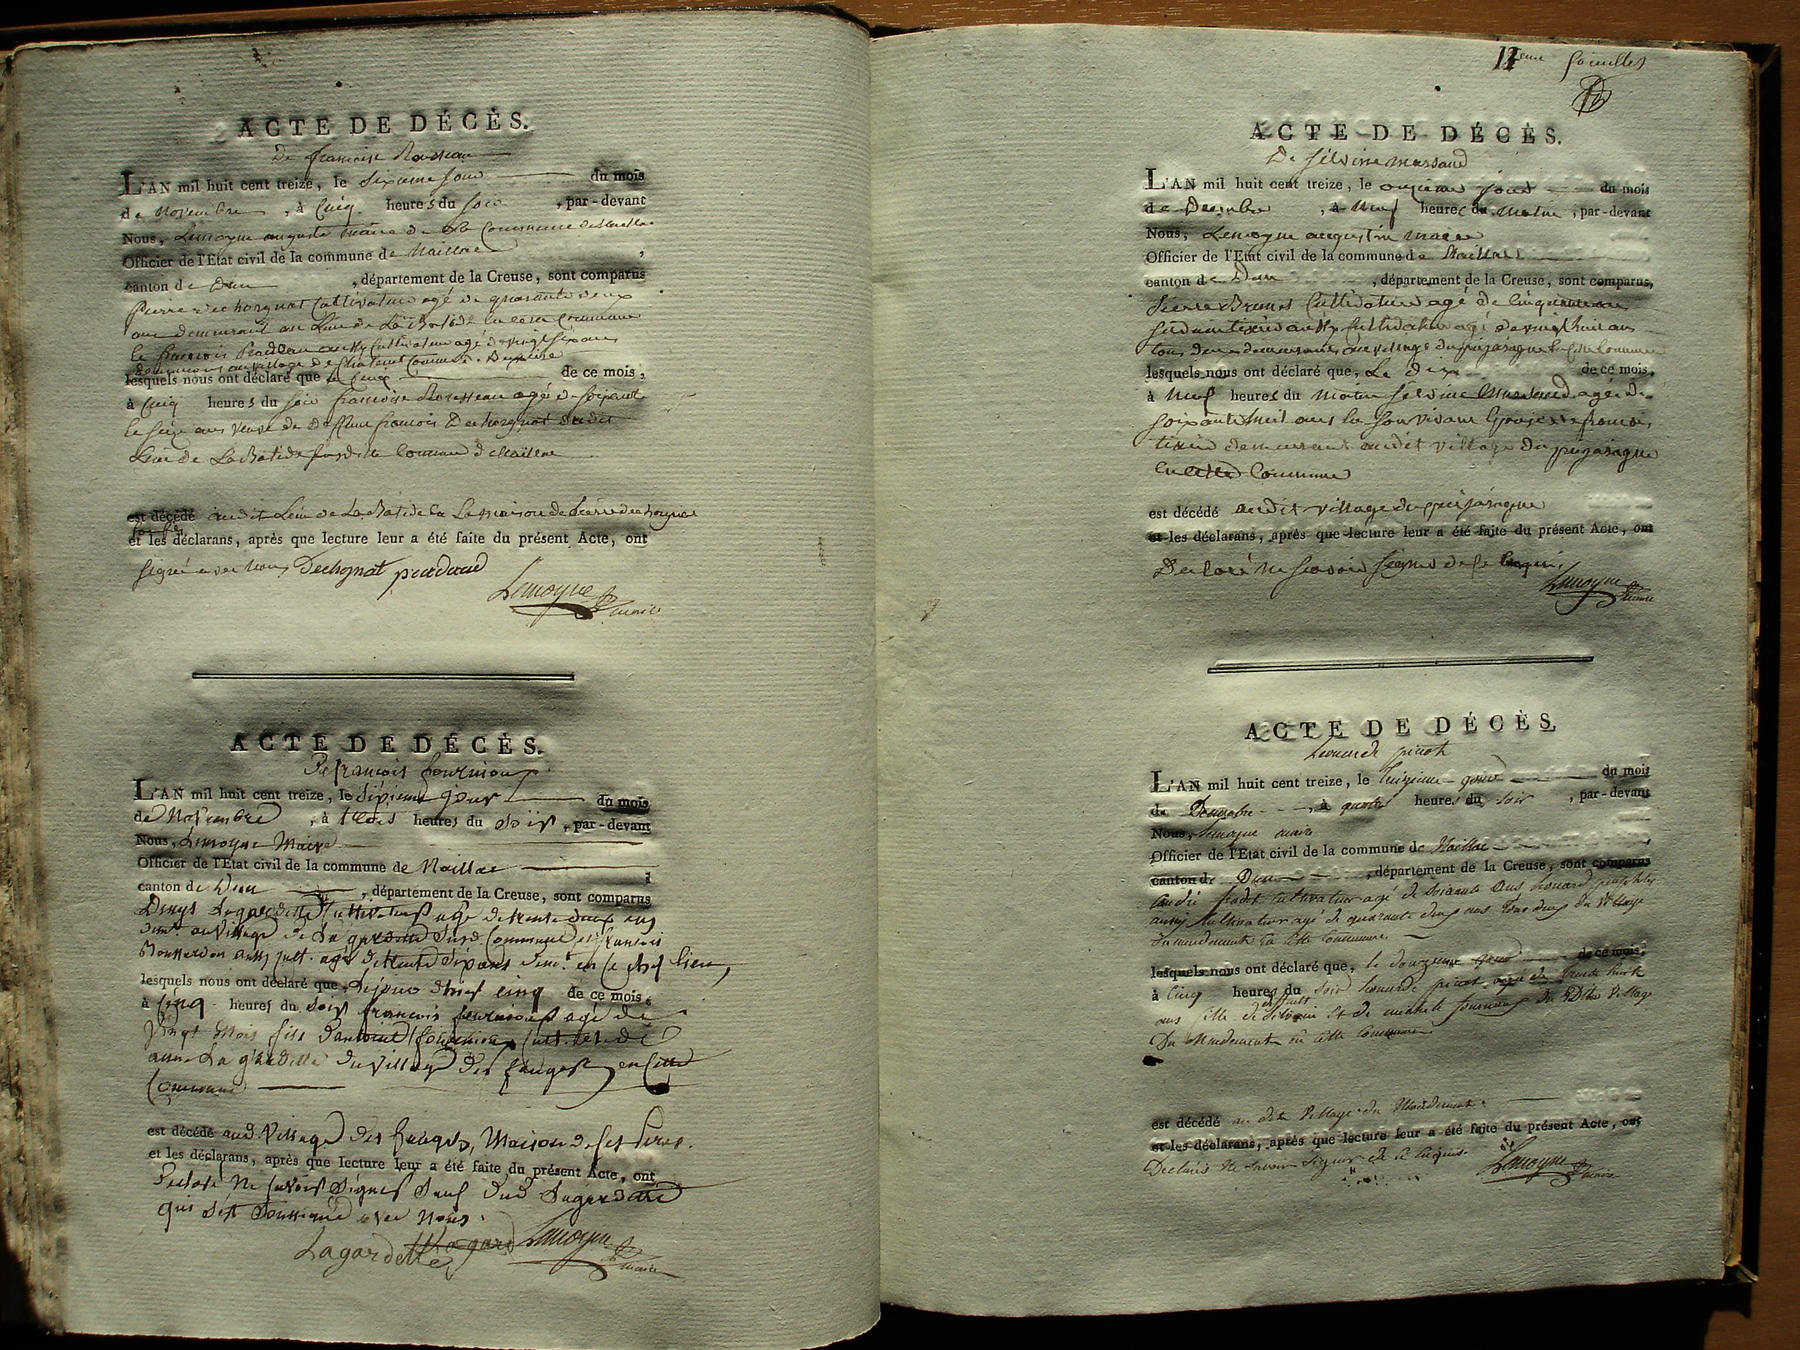 ACTE DE DÉCÈS.
De françoise Rousseau
L'AN mil huit cent treize, le sixieme jour du mois
de Novembre, à Cinq heures du soir, par-devant
Nous, Lemoyne auguste maire de la Commune de Naillac
Officier de l'Etat civil de la commune de Naillac,
canton de Dun, département de la Creuse, sont comparus
Pierre dechorgnat Cultivateur agé de quarante deux
ans demeurant au Lieu de La Batide en cette Commune
et françois Pradeau aussy Cultivateur agé de vingt six ans
demeurant au village de Commune de
lesquels nous ont déclaré que le Cinq de ce mois,
à Cinq heures du soir françoise Rousseau agée de soixante
et seize ans veuve de Deffunt françois Dechorgnat dudit
Lieu de La Batide susdite Commune de Naillac
est décédé audit Lieu de La Batide en La maison de Pierre dechorgnat
et les déclarans, après que lecture leur a été faite du présent Acte, ont
signé avec nous Dechorgnat pradeaud
Lemoyne
maire
ACTE DE DÉCÈS.
De françois fournioux
L'AN mil huit cent treize, le sixieme jour du mois
de Novembre, à heures du soir, par-devant
Nous, Lemoyne Maire
Officier de l'Etat civil de la commune de Naillac,
canton de Dun, département de la Creuse, sont comparus
Denys Lagardette Cultivateur agé de trente deux ans
demt. au village de La gardette susd. Commune et françois
aussy cult. agé de trente six ans demt. en ce chef lieu,
lesquels nous ont déclaré que, cinq de ce mois,
à Cinq heures du soir françois fournioux agé de
vingt mois fils d'antoine fournioux cult. et de
anne La gardette du village des fauges, en Cette
Commune
est décédé aud. village des fauges, Maison de ses Peres.
et les déclarans, après que lecture leur a été faite du présent Acte, ont
Declaré Ne savoir signer sauf Lagardette
qui s'est soussigné avec Nous.
Lagardette Lemoyne
maire
11eme feuillet
ACTE DE DÉCÈS.
De silvine massaud
L'AN mil huit cent treize, le onzieme jour du mois
de Decembre, à Neuf heures du matin, par-devant
Nous, Lemoyne augustin maire
Officier de l'Etat civil de la commune de Naillac
canton de Dun, département de la Creuse, sont comparus,
Pierre Brunet Cultivateur agé de Cinquante ans
tixier aussy Cultivateur agé de vingt huit ans
tous deux demeurants au village du puyjasaigne En Cette Commune
lesquels nous ont déclaré que, Le dix de ce mois,
à Neuf heures du Matin Silvine massaud agée de
soixante huit ans La survivante Epouse de françois
tixier demeurant audit village du puyjasaigne
En Cette Commune
est décédé audit village du puyjasaigne
et les déclarans, après que lecture leur a été faite du présent Acte, ont
Declaré Ne savoir signer de ce Requis
Lemoyne
maire
ACTE DE DÉCÈS.
Leonarde picot
L'AN mil huit cent treize, le treizieme jour du mois
de Decembre, à quatre heures du soir, par-devant
Nous, Lemoyne maire
Officier de l'Etat civil de la commune de Naillac
canton de Dun, département de la Creuse, sont comparus
andré Cultivateur agé de soixante ans Leonard
aussy Cultivateur agé de quarante deux ans Tous deux du Village
du mondement En Cette Commune
lesquels nous ont déclaré que, le douzieme jour de ce mois,
à Cinq heures du soir Leonarde picot agée de trente huit
ans fille de deffunt Silvain Et de michele fournoux Du Dit Village
Du Mondement en cette Commune
est décédé au dit Village du Mondement
et les déclarans, après que lecture leur a été faite du présent Acte, ont
Declaré Ne savoir signer de ce Requis
Lemoyne
maire